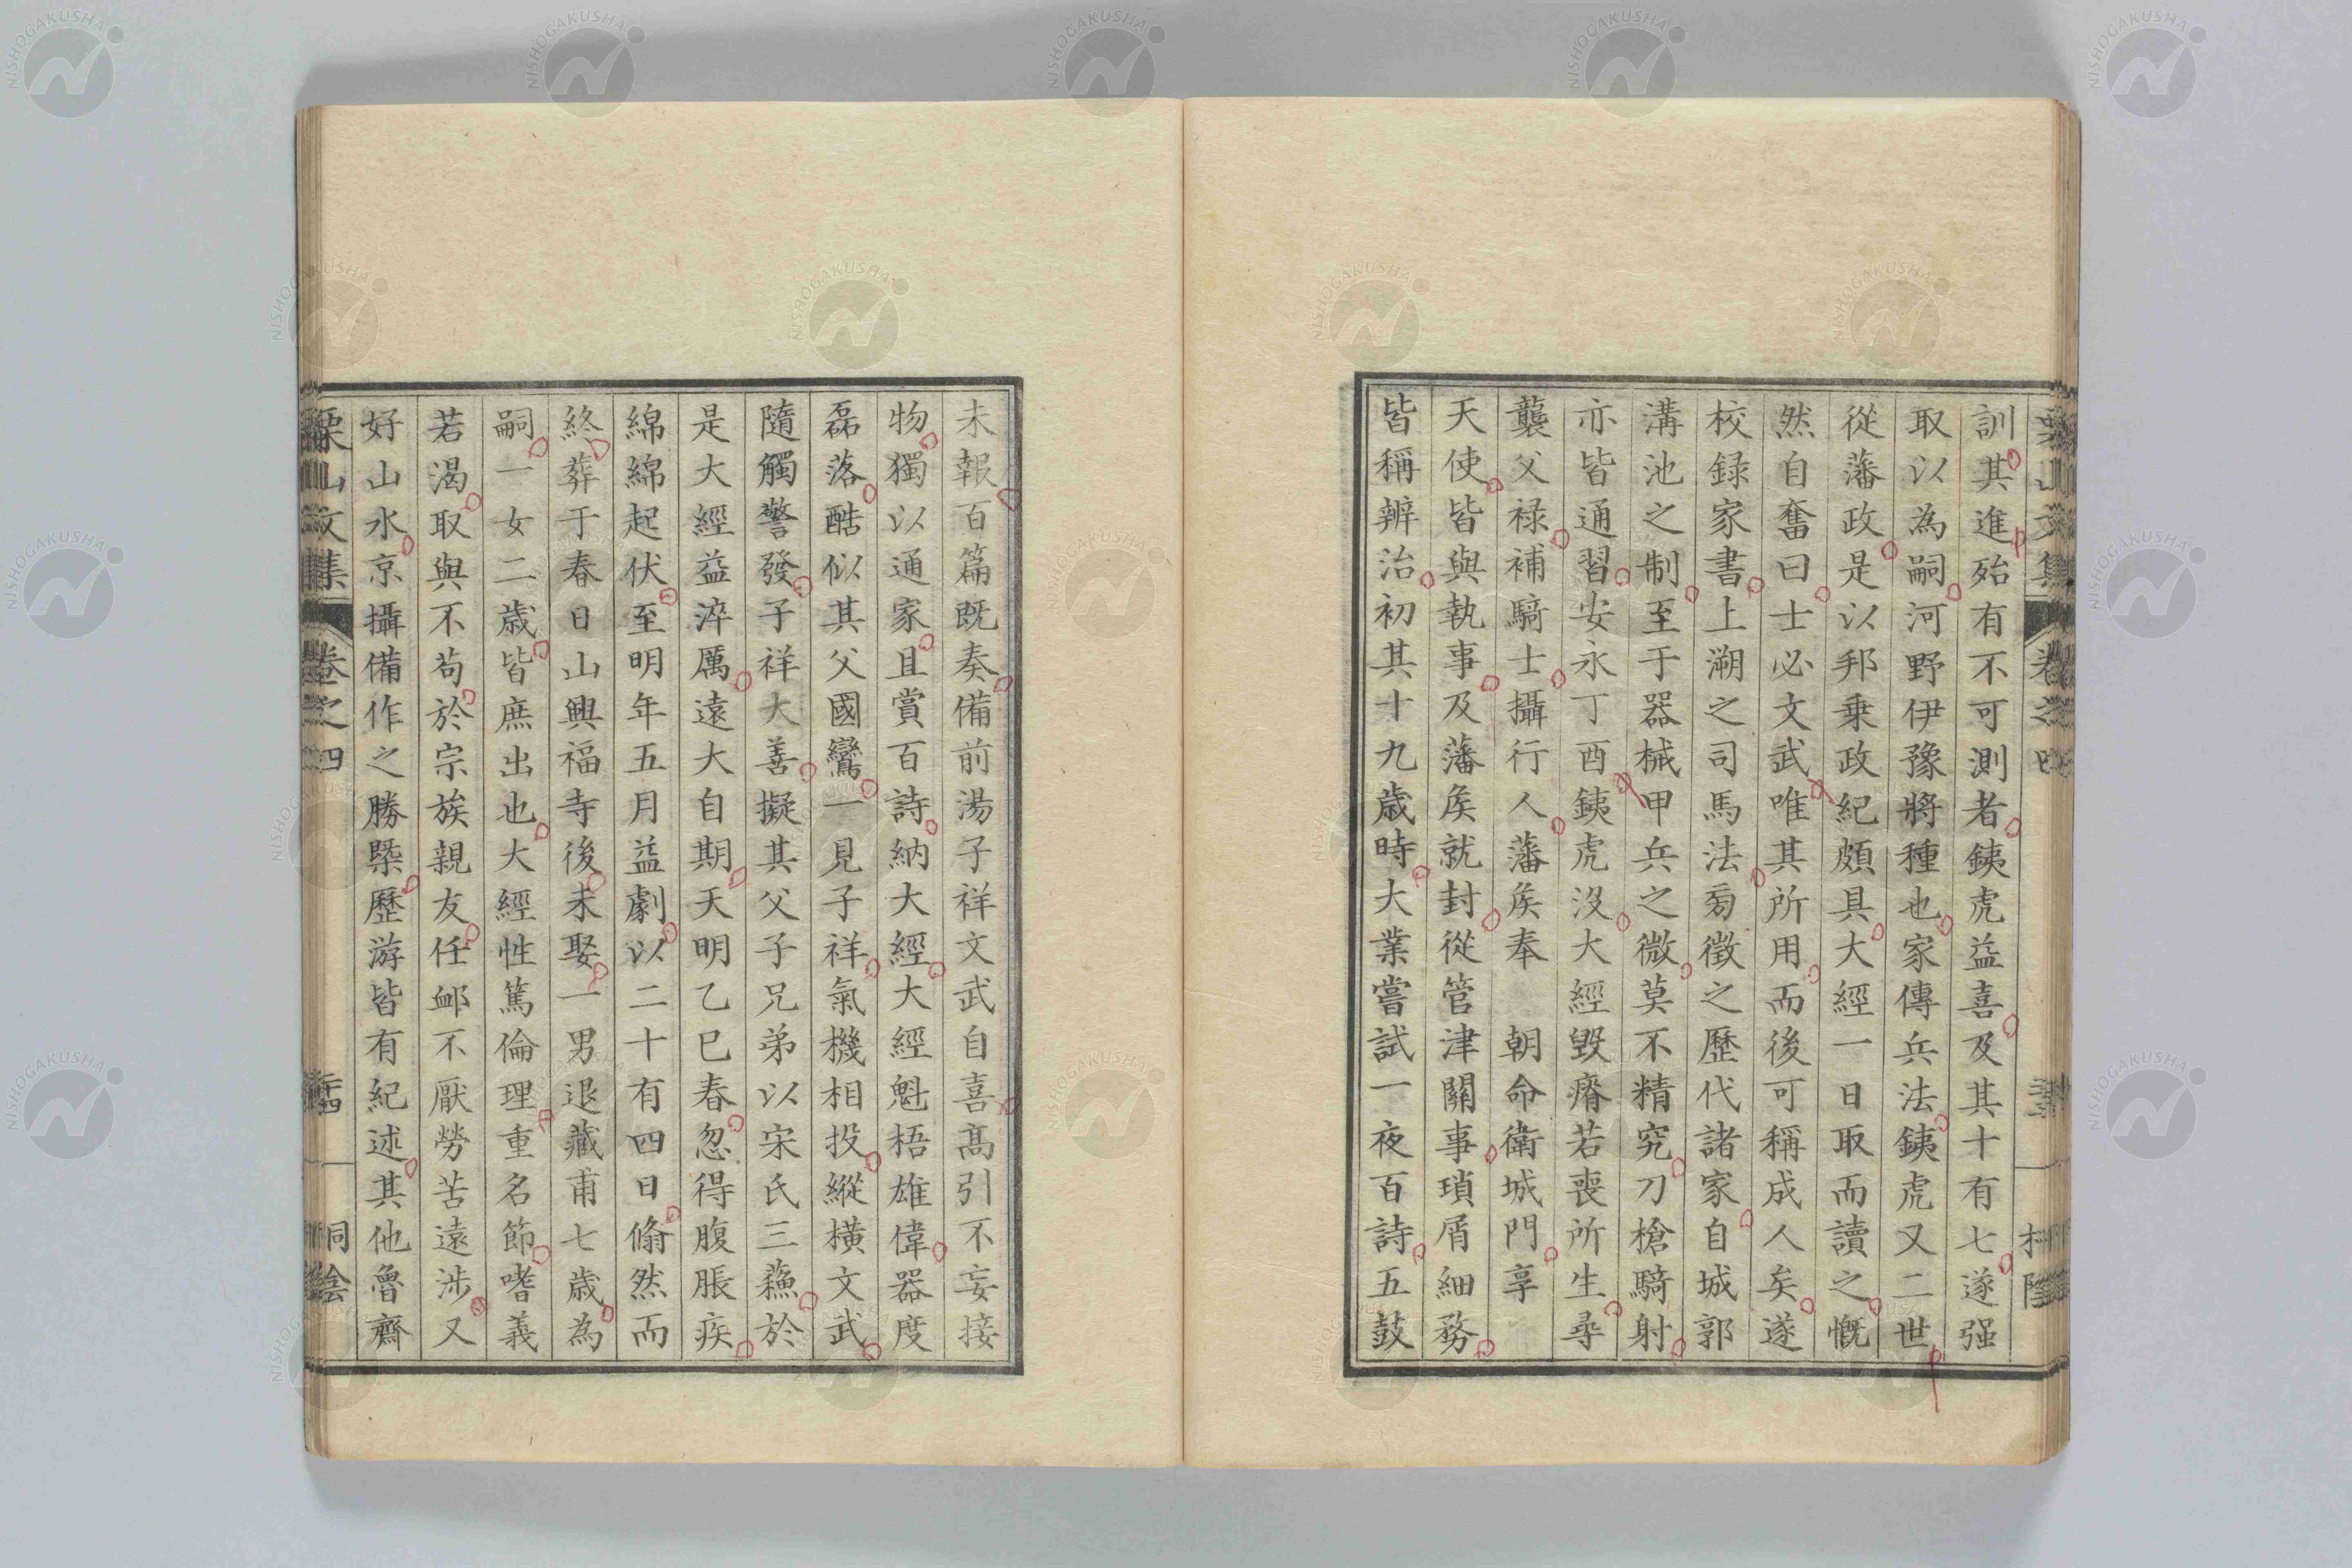 訓其進殆有不可測者銕虎益喜及其十有七遂强
取以為嗣河野伊豫將種也家傳兵法銕虎又二世
從藩政是以邦乗政紀頗具大經一日取而讀之慨
然自奮曰士必文武唯其所用而後可稱成人矣遂
校録家書上溯之司馬法旁徵之歷代諸家自城郭
溝池之制至于器械甲兵之微莫不精究刀槍騎射
亦皆通習安永丁酉銕虎沒大經毀瘠若喪所生尋
襲父祿補騎士攝行人藩矦奉 朝命衛城門享
天使皆與執事及藩矦就封從管津關事瑣屑細務
皆稱辨治初其十九歲時大業嘗試一夜百詩五鼓
未報百篇既奏備前湯子祥文武自喜髙引不妄接
物獨以通家且賞百詩納大經大經魁梧雄偉器度
磊落酷似其父國鸞一見子祥氣機相投縱橫文武
隨觸警發子祥大善擬其父子兄弟以宋氏三蘓於
是大經益淬厲遠大自期天明乙巳春忽得腹脹疾
綿綿起伏至明年五月益劇以二十有四日翛然而
終葬于春日山興福寺後未娶一男退藏甫七歲為
嗣一女二歲皆庶出也大經性篤倫理重名節嗜義
若渴取與不苟於宗族親友任䘏不厭勞苦遠涉又
好山水京攝備作之勝槩歷游皆有紀述其他魯齋
栗山文集 卷之四